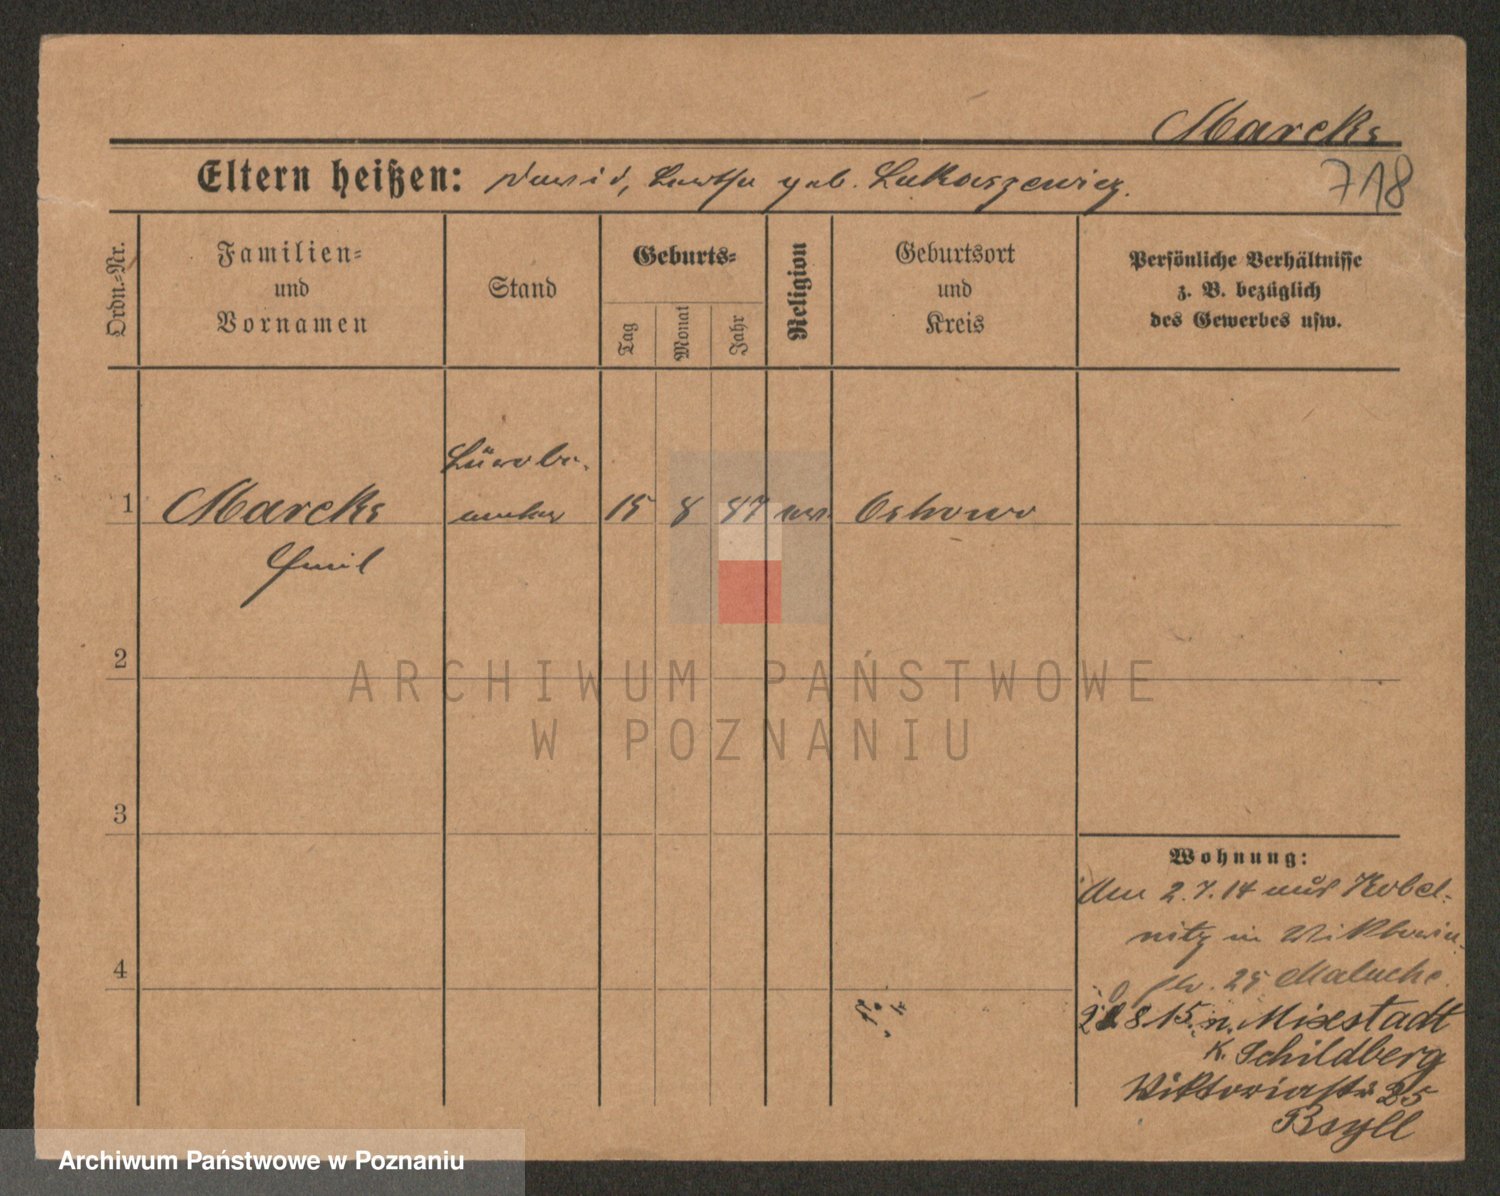 Marcks
718
Eltern heißen: David, Bertha geb. Lukaszewicz.
Ordn.=Nr.
Familien=
und
Vornamen
Stand
Geburts=
Tag
Monat
Jahr
Religion
Geburtsort
und
Kreis
Persönliche Verhältnisse
z. B. bezüglich
des Gewerbes usw.
Büroba-
1 Marcks 15 8 87
Emil
2
3
4
Wohnung:
Am 2.7.14 aus Kobel-
nitz in Viktoria-
str. 25 Maluche
28 8 15 n. Mixstadt
K. Schildberg
Viktoriastr 25
Bsyll
ARCHIWUM PAŃSTWOWE
W POZNANIU
Archiwum Państwowe w Poznaniu